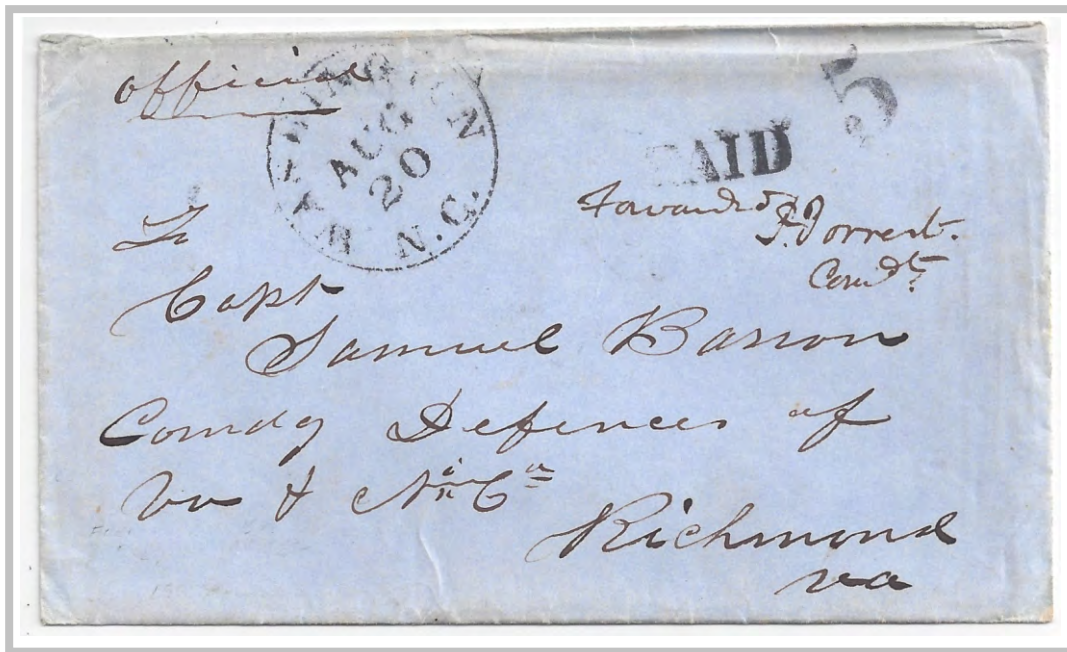 official
WILMINGTON N.C.
AUG
20
PAID 5
Forwarded
F. Forrest.
Comdt
To
Capt
Samuel Barron
Comdg Defences of
Va & No Ca
Richmond
va